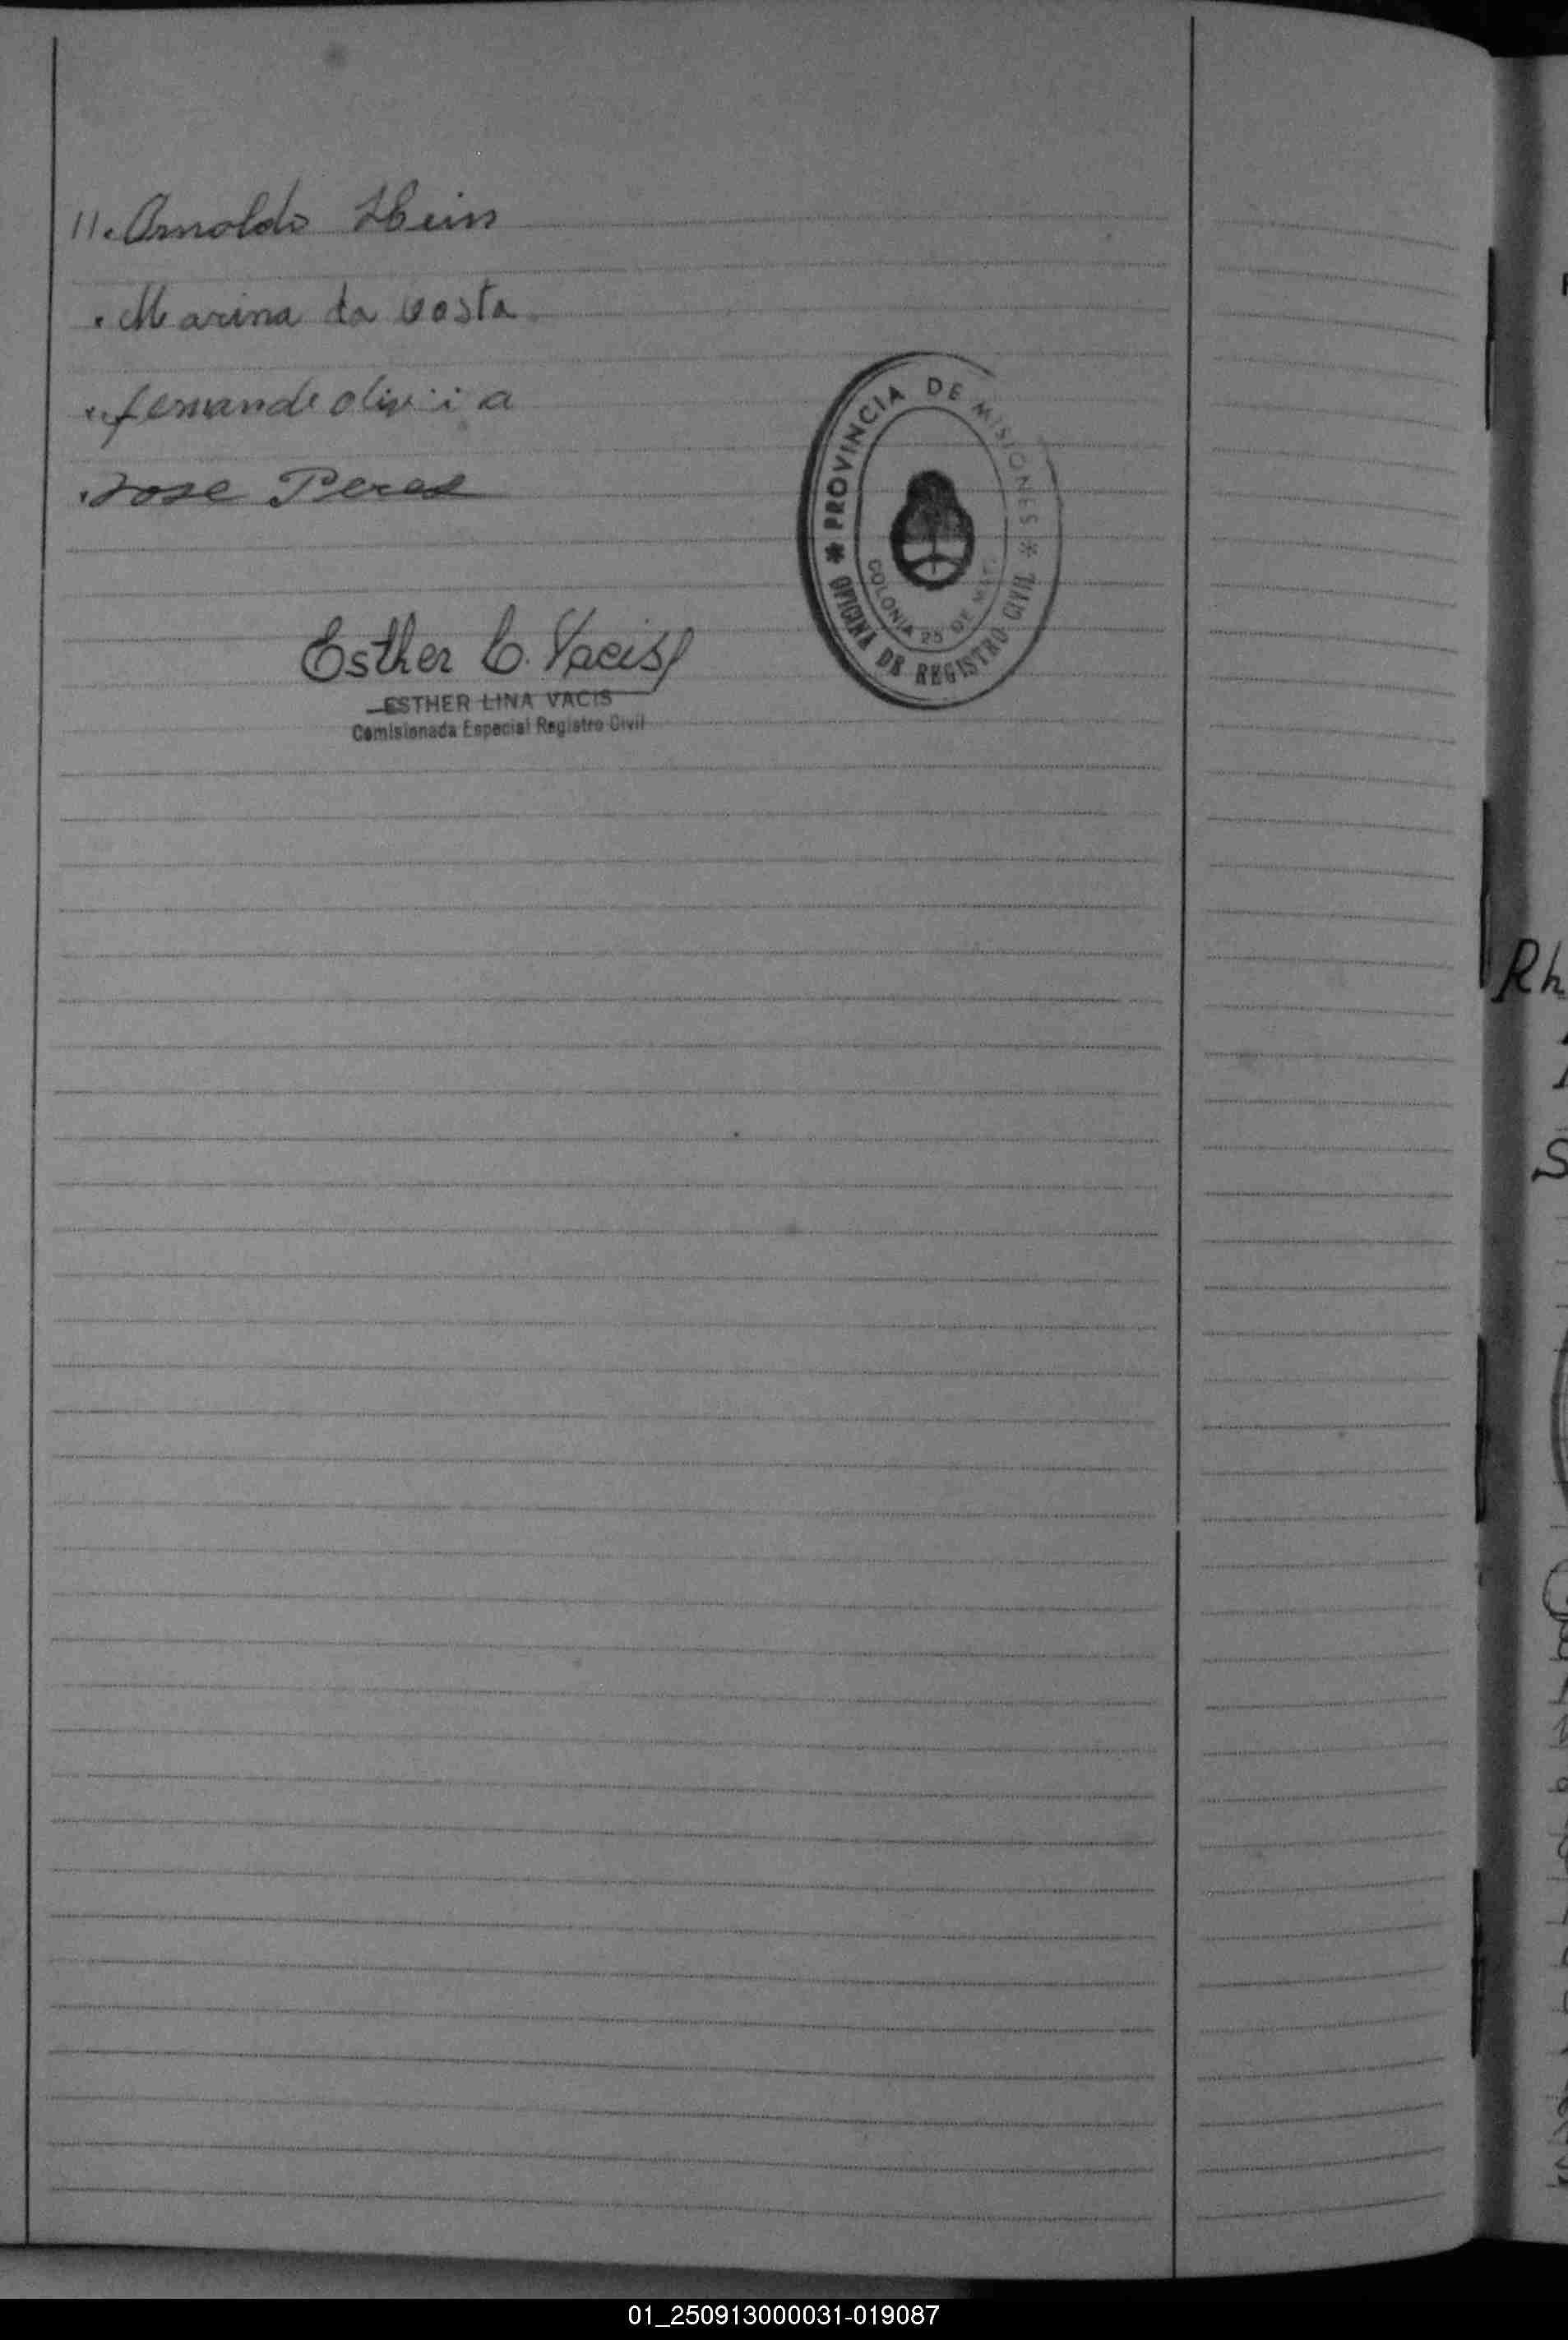 11. Arnoldo Hein
. Marina da Costa
Jose Peres
PROVINCIA DE MISIONES
COLONIA 25 DE MAYO
OFICINA DE REGISTRO CIVIL
Esther L. Vacis
ESTHER LINA VACIS
Comisionada Especial Registro Civil
Rh
S
01_250913000031-019087